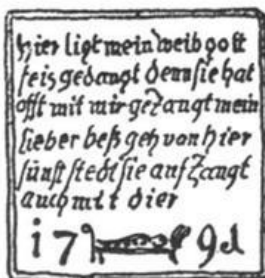 hier ligt mein weib gott
seis gedangt denn sie hat
offt mit mir gezangt mein
lieber beß geh von hier
sünst stedt sie auf zangt
auch mit dier
17 9